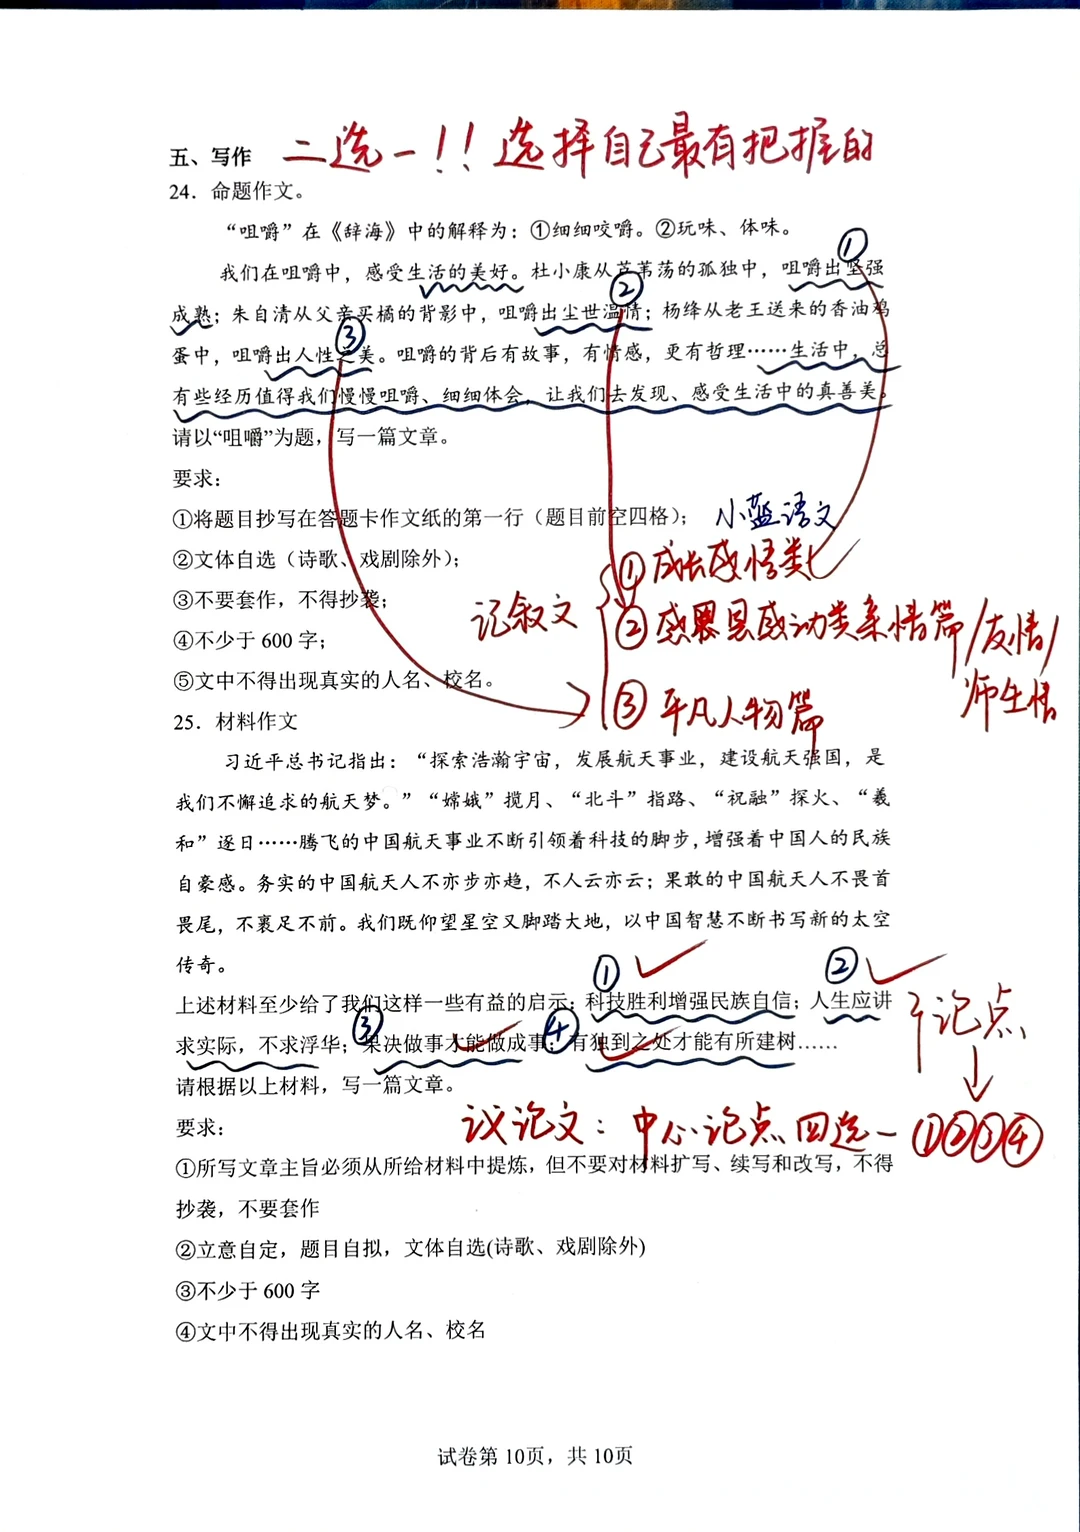 五、写作 二选一!! 选择自己最有把握的
24. 命题作文。
“咀嚼”在《辞海》中的解释为：①细细咬嚼。②玩味、体味。
①
我们在咀嚼中，感受生活的美好。杜小康从芦苇荡的孤独中，咀嚼出坚强
②
成熟；朱自清从父亲买橘的背影中，咀嚼出尘世温情；杨绛从老王送来的香油鸡
③
蛋中，咀嚼出人性之美。咀嚼的背后有故事，有情感，更有哲理……生活中，总
有些经历值得我们慢慢咀嚼、细细体会，让我们去发现、感受生活中的真善美。
请以“咀嚼”为题，写一篇文章。
要求：
①将题目抄写在答题卡作文纸的第一行（题目前空四格）； 小蓝语文
②文体自选（诗歌、戏剧除外）；
①成长感悟类
③不要套作，不得抄袭；
记叙文
②感恩感动类亲情篇/友情/
师生情
④不少于 600 字；
⑤文中不得出现真实的人名、校名。
③平凡人物篇
25. 材料作文
习近平总书记指出：“探索浩瀚宇宙，发展航天事业，建设航天强国，是
我们不懈追求的航天梦。”“嫦娥”揽月、“北斗”指路、“祝融”探火、“羲
和”逐日……腾飞的中国航天事业不断引领着科技的脚步，增强着中国人的民族
自豪感。务实的中国航天人不亦步亦趋，不人云亦云；果敢的中国航天人不畏首
畏尾，不裹足不前。我们既仰望星空又脚踏大地，以中国智慧不断书写新的太空
传奇。
① ②
上述材料至少给了我们这样一些有益的启示：科技胜利增强民族自信；人生应讲
③ ④
求实际，不求浮华；果决做事才能做成事；有独到之处才能有所建树……
论点
请根据以上材料，写一篇文章。
议论文：中心论点四选一①②③④
要求：
①所写文章主旨必须从所给材料中提炼，但不要对材料扩写、续写和改写，不得
抄袭，不要套作
②立意自定，题目自拟，文体自选(诗歌、戏剧除外)
③不少于 600 字
④文中不得出现真实的人名、校名
试卷第 10页，共 10页